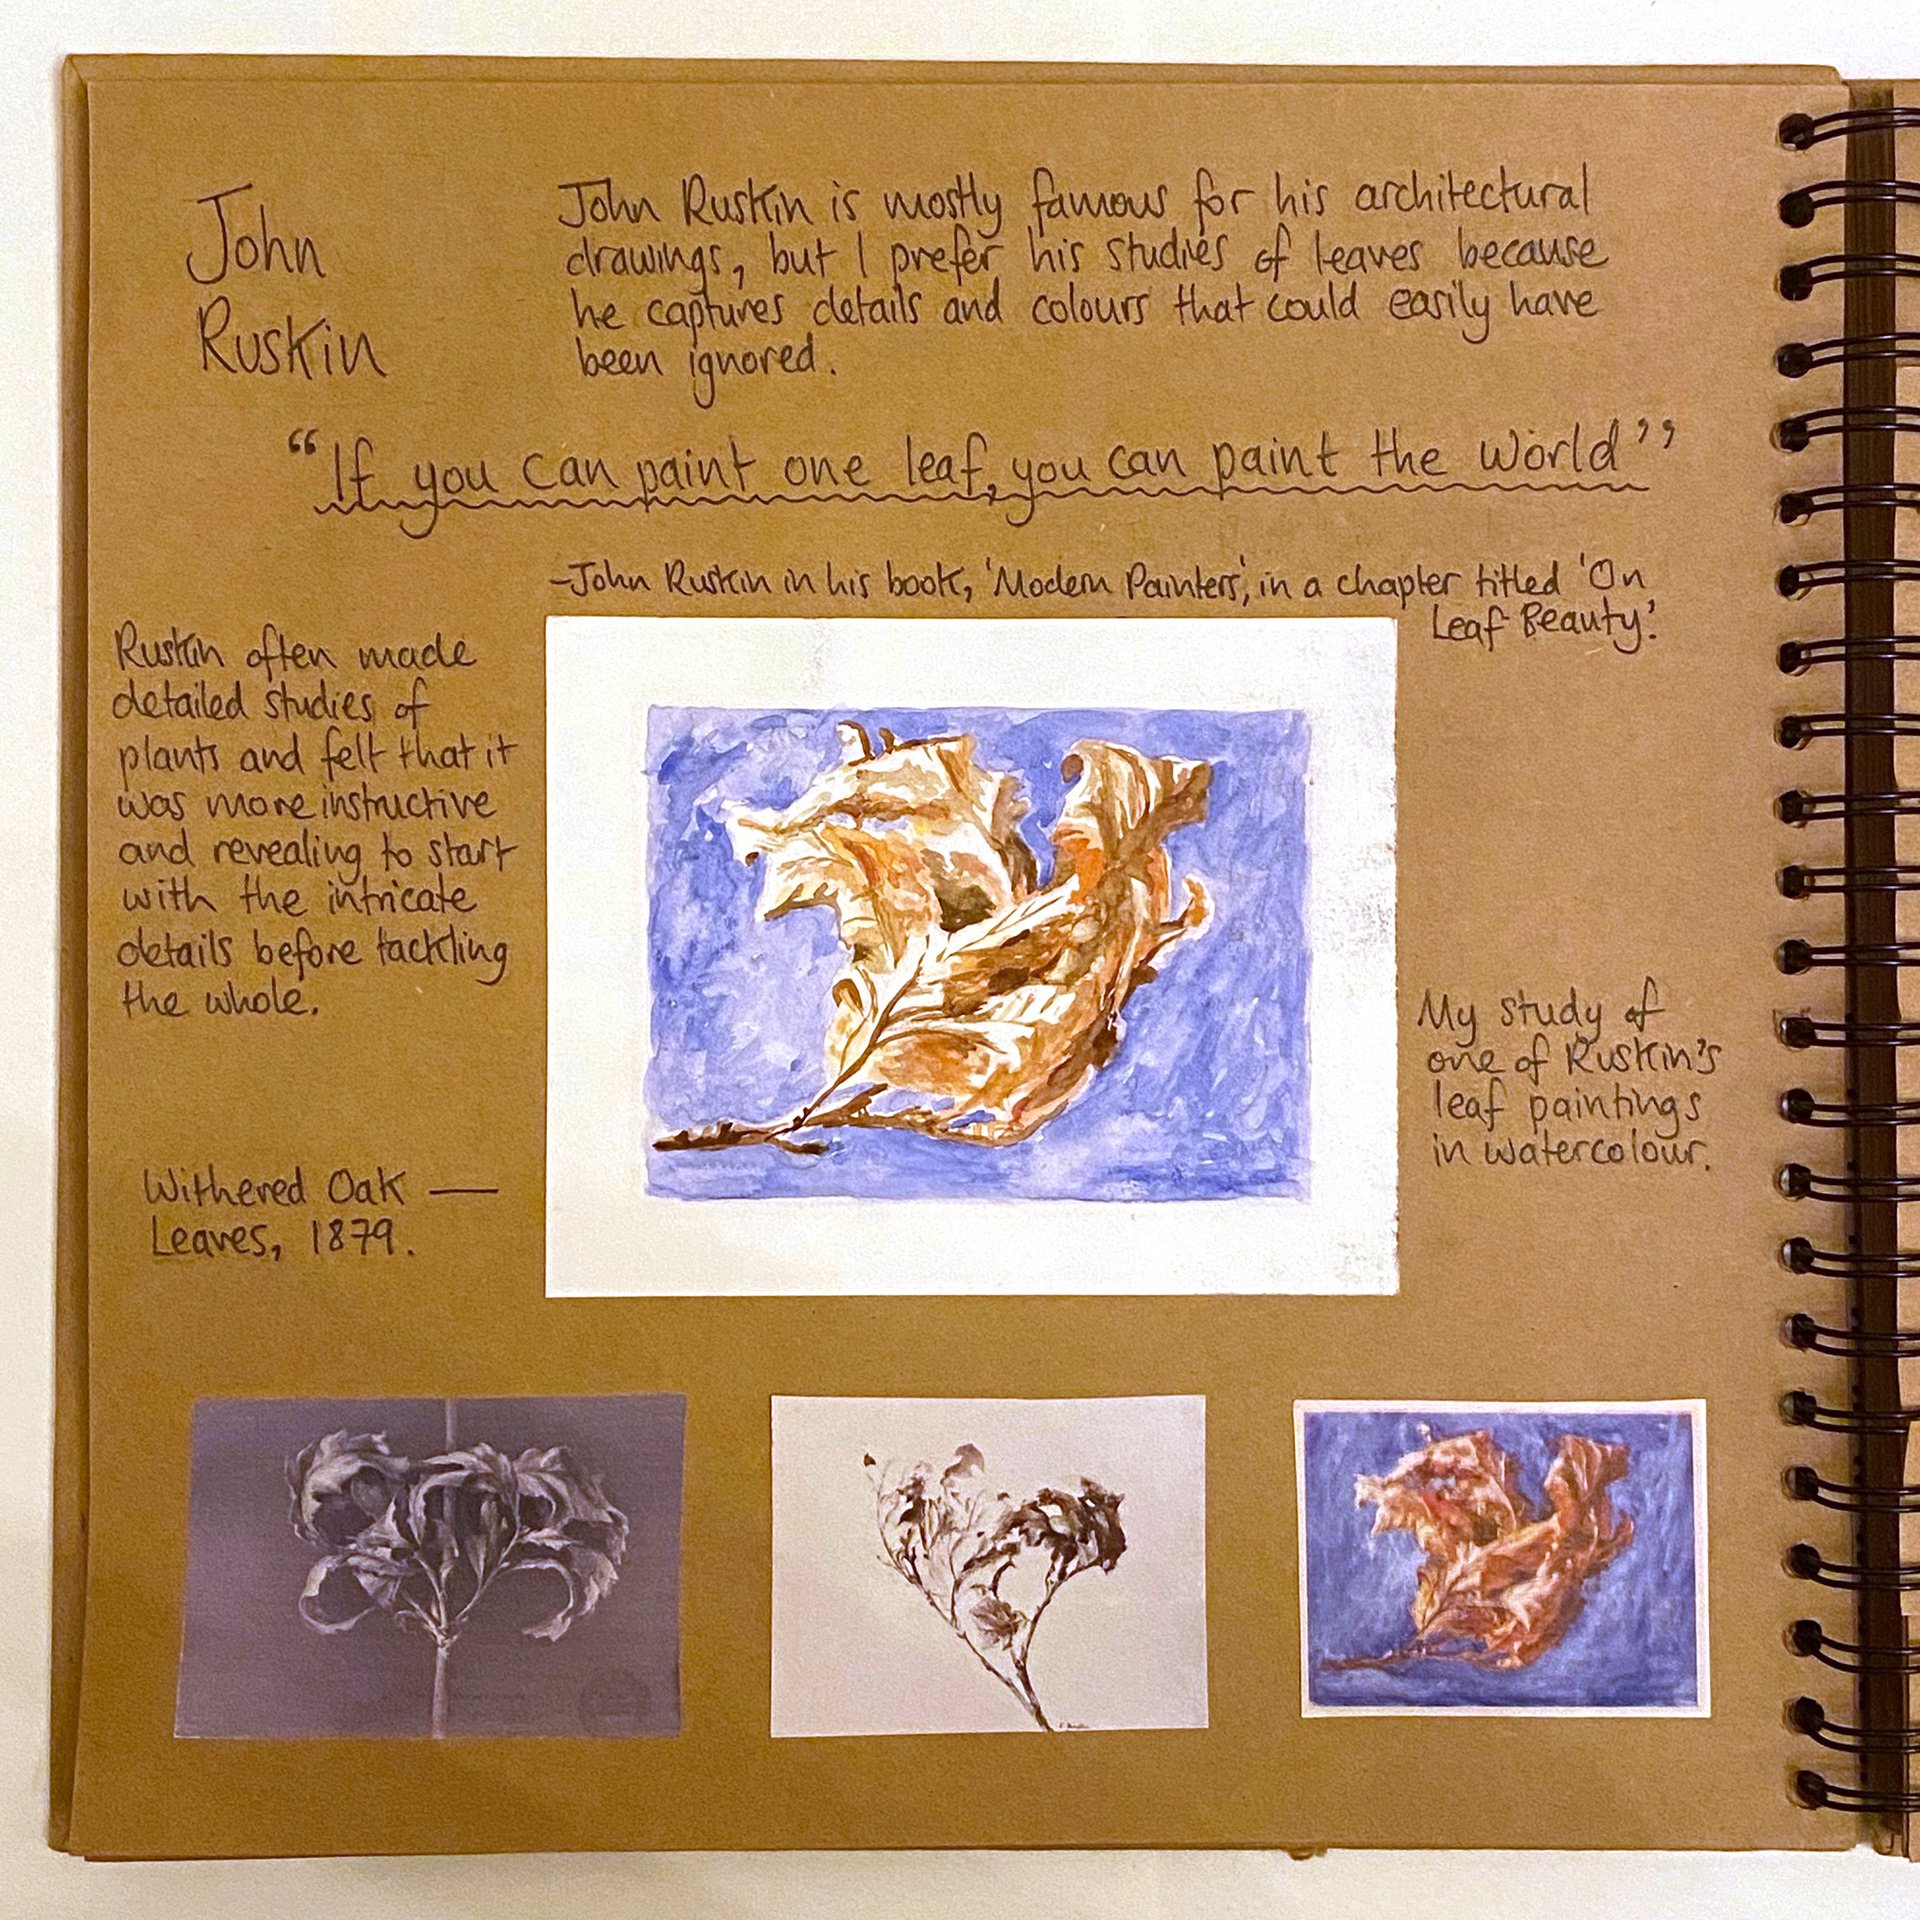 John
Ruskin
John Ruskin is mostly famous for his architectural
drawings, but I prefer his studies of leaves because
he captures details and colours that could easily have
been ignored.
“If you can paint one leaf, you can paint the world”
-John Ruskin in his book, 'Modern Painters', in a chapter titled 'On
Leaf Beauty'.
Ruskin often made
detailed studies of
plants and felt that it
was more instructive
and revealing to start
with the intricate
details before tackling
the whole.
Withered Oak —
Leaves, 1879.
My study of
one of Ruskin's
leaf paintings
in watercolour.